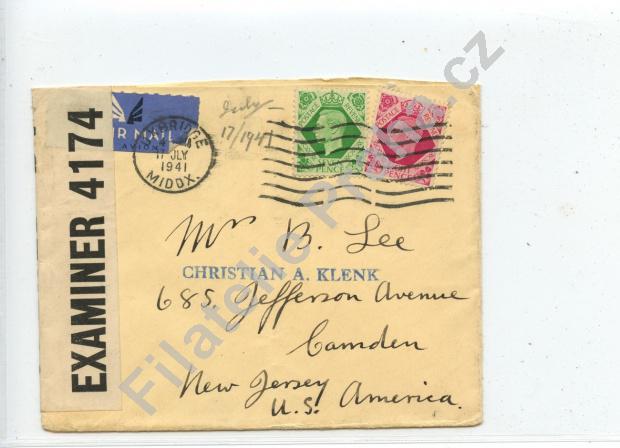 EXAMINER 4174
R MAIL
AVION
BRIDGE
17 JLY
1941
MIDDX.
July
17/1941
POSTAGE
PENCE
POSTAGE
PENCE
Mrs B. Lee
CHRISTIAN A. KLENK
685, Jefferson Avenue
Camden
New Jersey
U.S. America.
Filatelie Praha.cz